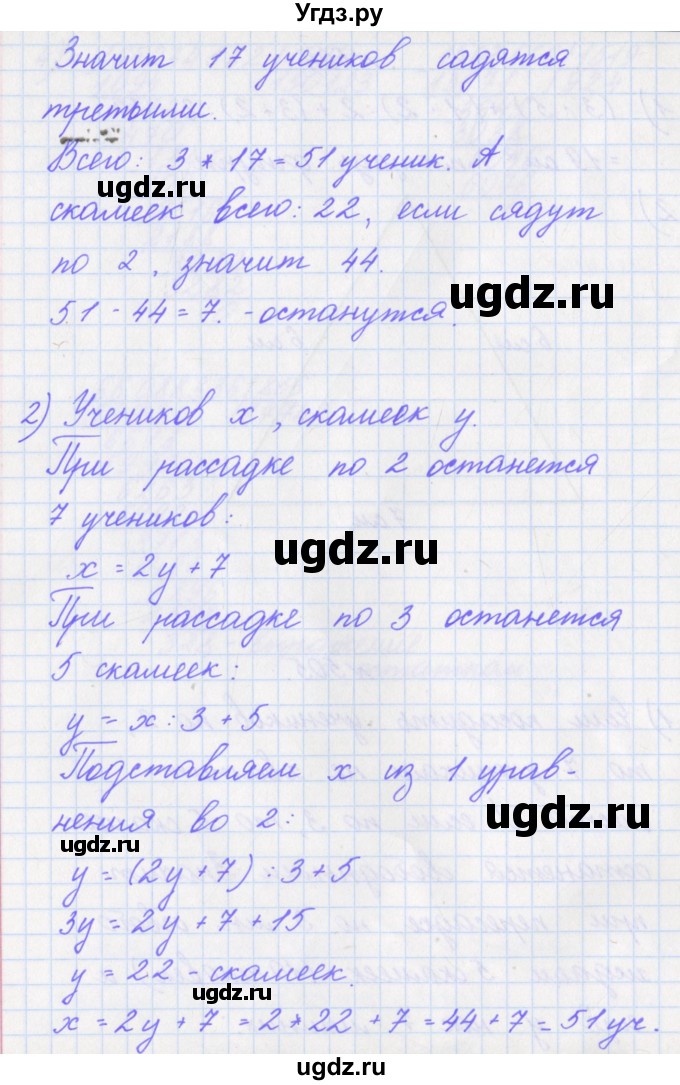 Угдз.ру
Значит 17 учеников садятся
третьими.
Всего: 3 * 17 = 51 ученик. А
ugdz.ru
скамеек всего: 22, если сядут
по 2, значит 44.
ugdz.ru
51 - 44 = 7. - останутся.
2) Учеников x, скамеек y.
При рассадке по 2 останется
7 учеников:
ugdz.ru
x = 2y + 7
При рассадке по 3 останется
5 скамеек:
y = x : 3 + 5
Подставляем x из 1 урав-
нения во 2:
ugdz.ru
y = (2y + 7) : 3 + 5
3y = 2y + 7 + 15
y = 22 - скамеек.
ugdz.ru
x = 2y + 7 = 2 * 22 + 7 = 44 + 7 = 51 уч.
ugdz.ru